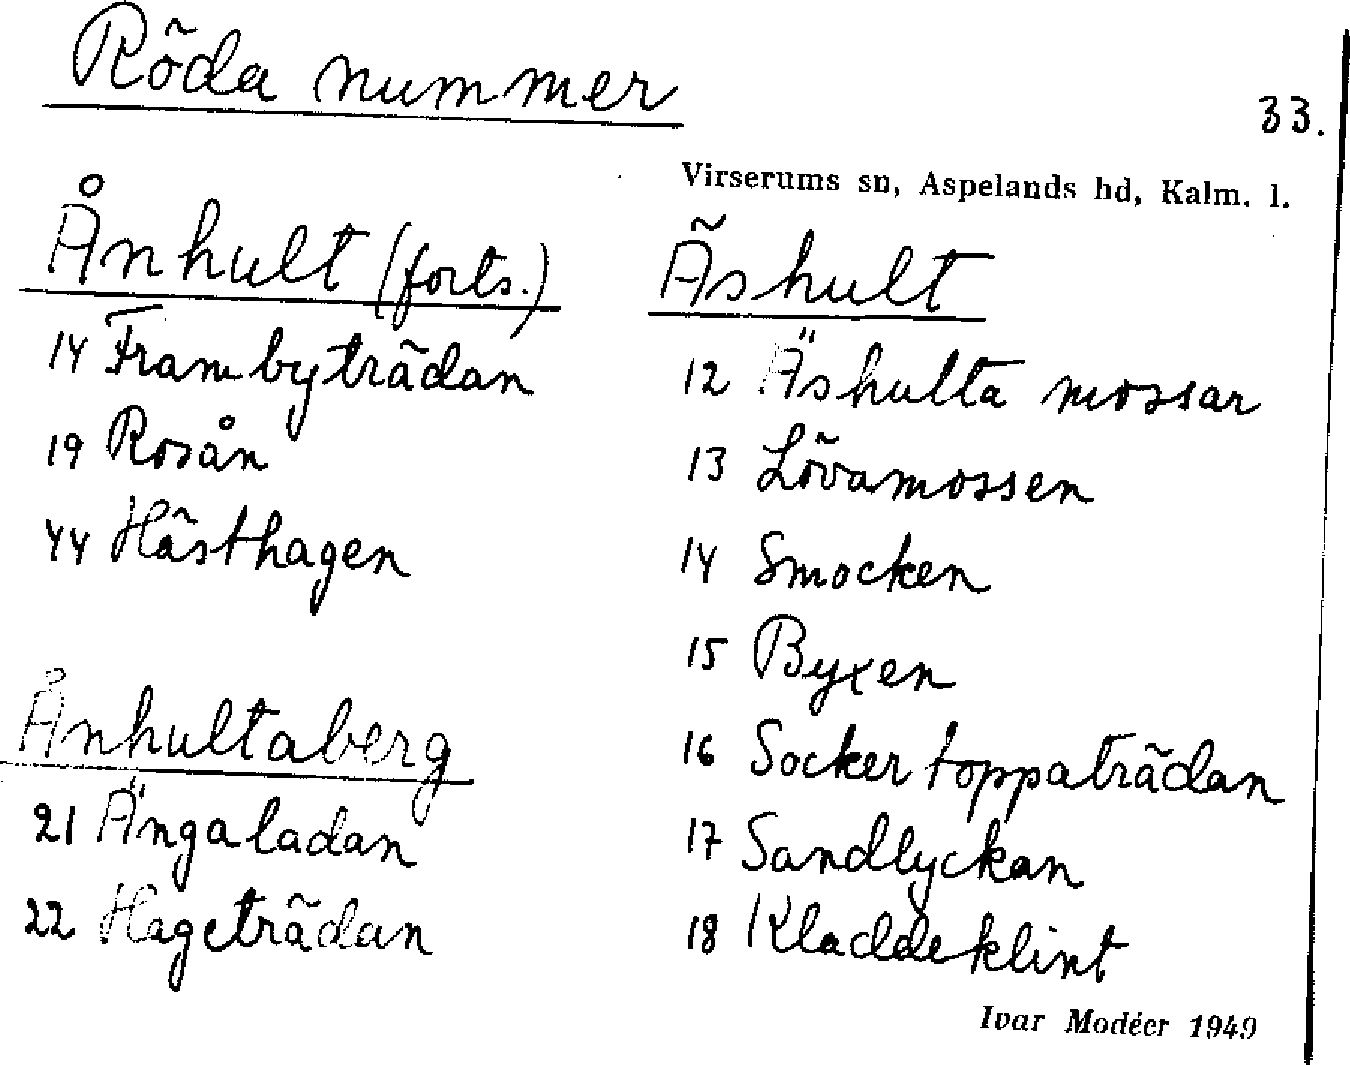 Röda nummer
33.
Virserums sn, Aspelands hd, Kalm. l.
Ånhult (forts.)
14 Frambyträdan
19 Rosån
44 Hästhagen
Ånhultaberg
21 Ängaladan
22 Hageträdan
Äshult
12 Äshulta mossar
13 Lövamossen
14 Smocken
15 Byxen
16 Sockertoppaträdan
17 Sandlyckan
18 Kladdeklint
Ivar Modéer 1949